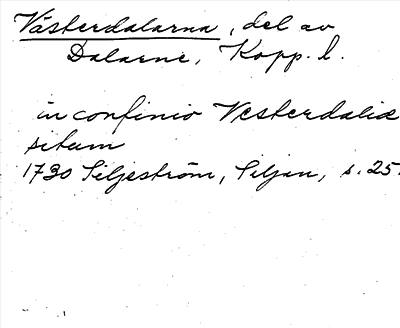 Västerdalarna, del av
Dalarne, Kopp. l.
in confinio Vesterdaliæ
situm
1730 Siljeström, Siljan, s. 25.